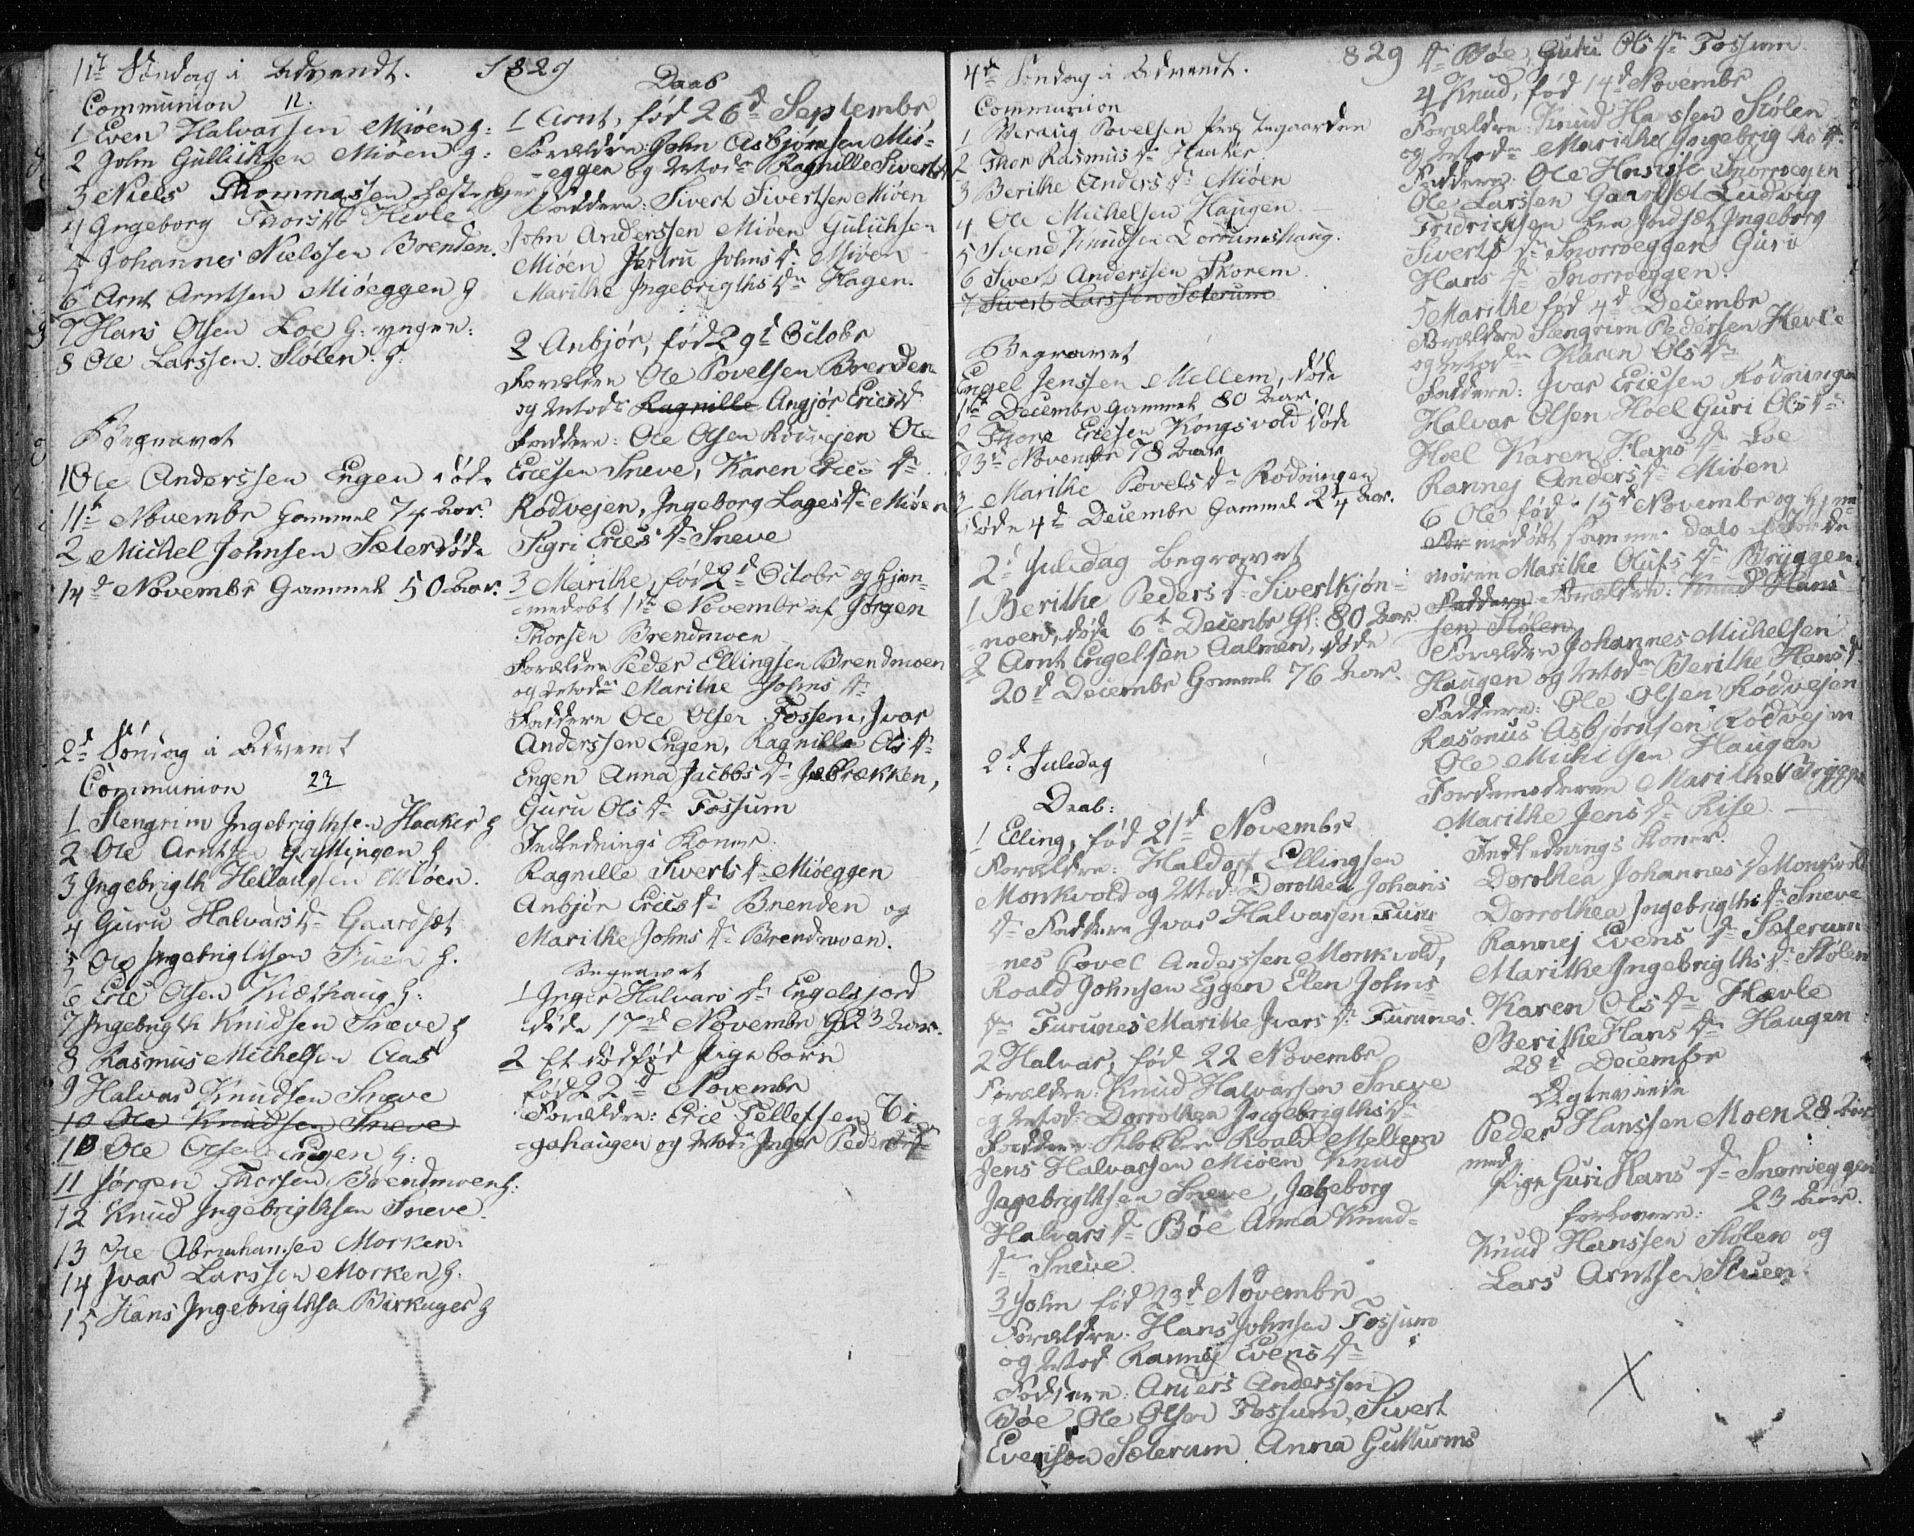 11te Søndag i Advendt. 1829
Communion 12.
1 Even Halvorsen Miøen g:
2 John Gulliksen Miøen g:
3 Niels Thommassen Hæsteskoen
4 Ingeborg Thorsd Hevle
5 Johannes Nielssen Brenden.
6 Arnt Arntsen Miøeggen g
7 Hans Olsen Loe G: yngere:
8 Ole Larssen Stølen g.
Begravet
1 Ole Anderssen Engen døde
11te Novembr Gammel 74 Aar.
2 Michel Johnsen Sæter døde
14de Novembr Gammel 50 Aar.
2d Søndag i Advendt
Communion 23
1 Stengrim Ingebrigthsen Haaker g
2 Ole Arntsen Gryttingen g
3 Ingebrigth Hellaugsen Miøen.
4 Guru Halvarsdr Gaardsæt
5 Ole Ingebrigthsen Stuen g.
6 Eric Olsen Viethaug g:
7 Ingebrigth Knudsen Sneve g
8 Rasmus Michelsen Aas
9 Halvor Knudsen Sneve
10 Ole Knudsen Sneve
10 Ole Olsen Engen g:
11 Jørgen Thorsen Brendmoen g:
12 Knud Ingebrigthsen Sneve.
13 Ole Abrahamsen Morken
14 Ivar Larssen Morken g.
15 Hans Ingebrigthsen Birkager g
Daab
1 Arnt, fød 26d Septembr
Forældre: John Asbjørnsen Miø-
-eggen og Mod Ragnille Sivertsd
Faddere: Sivert Sivertsen Miøen
John Anderssen Miøen Gulichsen
Miøen Jertru Johnsdr Miøen
Marithe Ingebrigthsdr Hagen.
2 Anbjør, fød 29d Octobr
Forældre Ole Povelsen Brenden
og Mod: Ragnille Angjør Ericsd
Faddere: Ole Olsen Rodvejen Ole
Ericsen Sneve, Karen Ericsdr
Rodvejen, Ingeborg Lagesdr Miøen
Sigri Ericsdr Sneve
3 Marithe, fød 2d Octobr og hjem-
-medøbt 1te Novembr af Jørgen
Thorsen Brendmoen
Forældre Peder Ellingsen Brendmoen
og Mod Marithe Johnsdr
Faddere Ole Olsen Fossem, Ivar
Anderssen Engen, Ragnille Olsdr
Engen Anna Jacobsdr Jebrækken,
Guru Olsdr Fossum
Indledningskoner.
Ragnille Sivertsdr Miøeggen
Anbjør Ericsdr Brenden og
Marithe Johnsdr Brendmoen.
Begravet
1 Inger Halvarsdr Engelsjord
døde 17d Novembr Gl 23 Aar.
2 Et dødfød Pigebarn
fød 22d Novembr
Forældre: Eric Tellefsen Vi-
-gahaugen og Mod Inger Pedersdr
4de Søndag i Advendt. 829
Communion
1 Beraug Povelsen Præstegaarden
2 Thor Rasmusdr Haaker
3 Berithe Andersdr Miøen
4 Ole Michelsen Haugen
5 Svend Knudsen Lorrumshaug.
6 Sivert Anderssen Skorem.
7 Sivert Larssen Sæterum
Begravet
Engel Jenssen Mellem, døde
1te Decembr Gammel 80 Aar
2 Thore Ericsen Kongsvold døde
23de Novembr 78 Aar
3 Marithe Povelsdr Rødningen
døde 4de Decembr Gammel 24 Aar.
2d Juledag begravet
1 Berithe Pedersdr Sivertkjøn-
-noen, døde 6te Decembr Gl: 80 Aar
2 Arnt Engelsen Aalmen, døde
20d Decembr Gammel 76 Aar.
2d Juledag
Daab:
1 Elling, fød 21d Novembr
Forældre: Haldor Ellingsen
Monkvold og Mod: Dorothea Johans
dr Faddere Ivar Halvarsen Furu
-nes Povel Anderssen Monkvold,
Roald Johnsen Eggen Elen Johns-
dr Furunes Marithe Ivarsdr Furunes.
2 Halvar, fød 22 Novembr
Forældre: Knud Halvarsen Sneve
og Mod Dorrothea Ingebrigthsdr
Faddere Klokker Roald Mellem
Jens Halvarsen Miøen Knud
Ingebrigthsen Sneve, Ingeborg
Halvarsdr Bøe Anna Knud-
dr Sneve.
3 John fød 23d Novembr
Forældre: Hans Johnsen Fossum
og Mod Rannej Evensdr
Faddere: Anders Anderssen
Bøe Ole Olsen Fossum, Sivert
Evensen Sæterum Anna Gutturms
dr Bøe, Guru Olsdr Fossum.
4 Knud, fød 14d Novembr
Forældre: Knud Hanssen Stølen
og Mod Marithe Ingebrigthsdr.
Faddere: Ole Hanssen Snorreggen
Ole Larssen Gaardsæt Ludvig
Fridrichsen Indset Ingeborg
Sivertsdr Snorreggen Guru
Hansdr Snorreggen.
5 Marithe fød 4d Decembr
Forældre Stengrim Pederssen Hevle
og Mod Karen Olsdr
Faddere: Ivar Ericsen Rødningen
Halvar Olsen Hoel Guri Olsdr
Hoel Karen Hansdr Loe
Rannej Andersdr Miøen
6 Ole fød 15d Novembr og hjem-
medøbt samme Dato af Jorde
moren Marithe Olufsdr Bryggen
Faddere Forældre: Knud Hans-
sen Stølen
Forældre Johannes Michelsen
Haugen og Mod Berithe Hansd
Faddere: Ole Olsen Rødvejen
Rasmus Asbjørnsen Rødvejen
Ole Michelsen Haugen
Jordemoderen Marithe Brygge
Marithe Jensdr Rise
Indledningskoner.
Dorothea Johannesd Monkvold
Dorrothea Ingebrigthsdr Sneve
Rannej Evensdr Sæterum
Marithe Ingebrigthsdr Stølen
Karen Olsdr Hevle
Berithe Hansdr Haugen
28d Decembr
Ægteviede
Peder Hanssen Moen 28 Aar
med
Pige Guri Hansdr Snorreggen
23 Aar.
Forlovere:
Knud Hanssen Stølen og
Lars Arntsen Stuen.